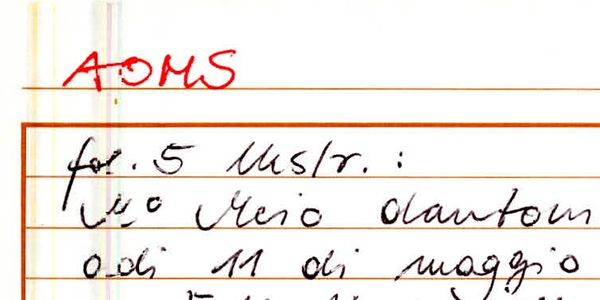 AOMS
fol. 5 Ms/r. :
Mo Meio dantoni
adi 11 di maggio